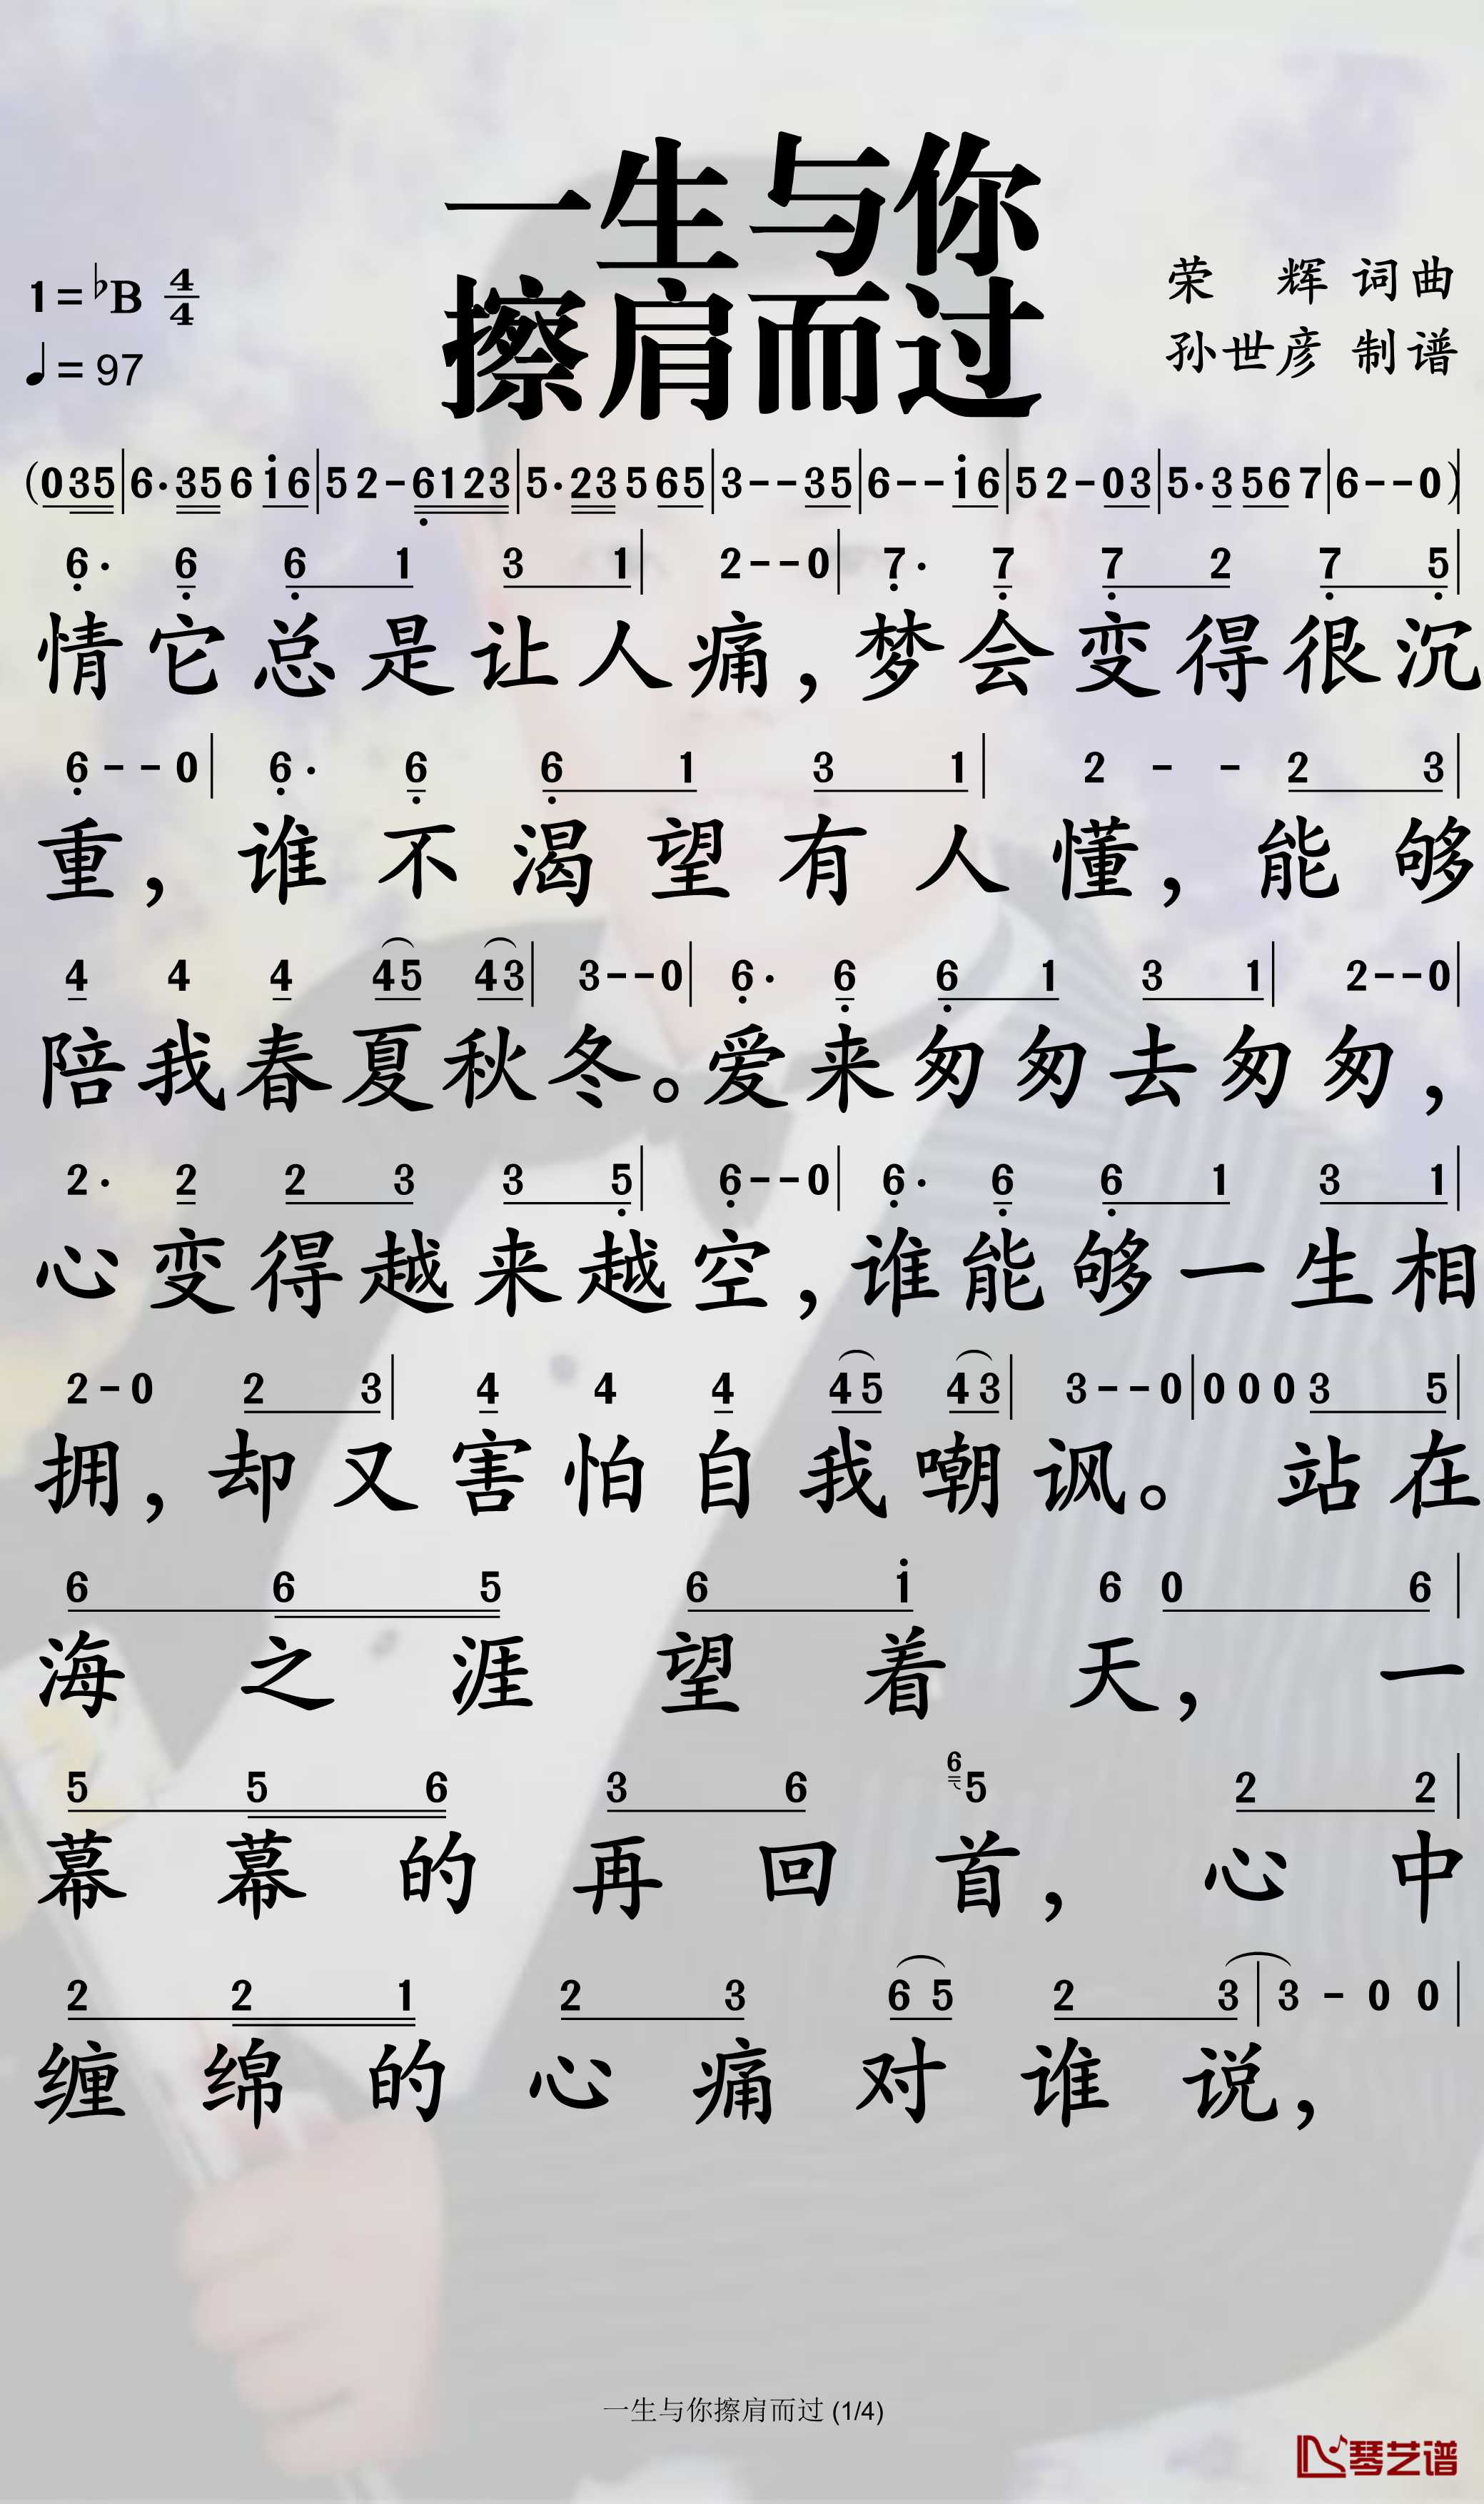 一生与你
擦肩而过
1=♭B 4/4
♩=97
荣 辉 词曲
孙世彦 制谱
(035|6·356i6|52-6123|5·23565|3--35|6--i6|52-03|5·3567|6--0)
6· 6 6 1 3 1| 2--0| 7· 7 7 2 7 5|
情它总是让人痛,梦会变得很沉
6--0| 6· 6 6 1 3 1| 2 - - 2 3|
重,谁不渴望有人懂,能够
4 4 4 45 43| 3--0| 6· 6 6 1 3 1| 2--0|
陪我春夏秋冬。爱来匆匆去匆匆,
2· 2 2 3 3 5| 6--0| 6· 6 6 1 3 1|
心变得越来越空,谁能够一生相
2-0 2 3| 4 4 4 45 43| 3--0|000 3 5|
拥,却又害怕自我嘲讽。站在
6 6 5 6 i 6 0 6|
海之涯望着天,一
5 5 6 3 6 6 5 2 2|
幕幕的再回首,心中
2 2 1 2 3 65 2 3|3 - 0 0|
缠绵的心痛对谁说,
一生与你擦肩而过 (1/4)
琴艺谱